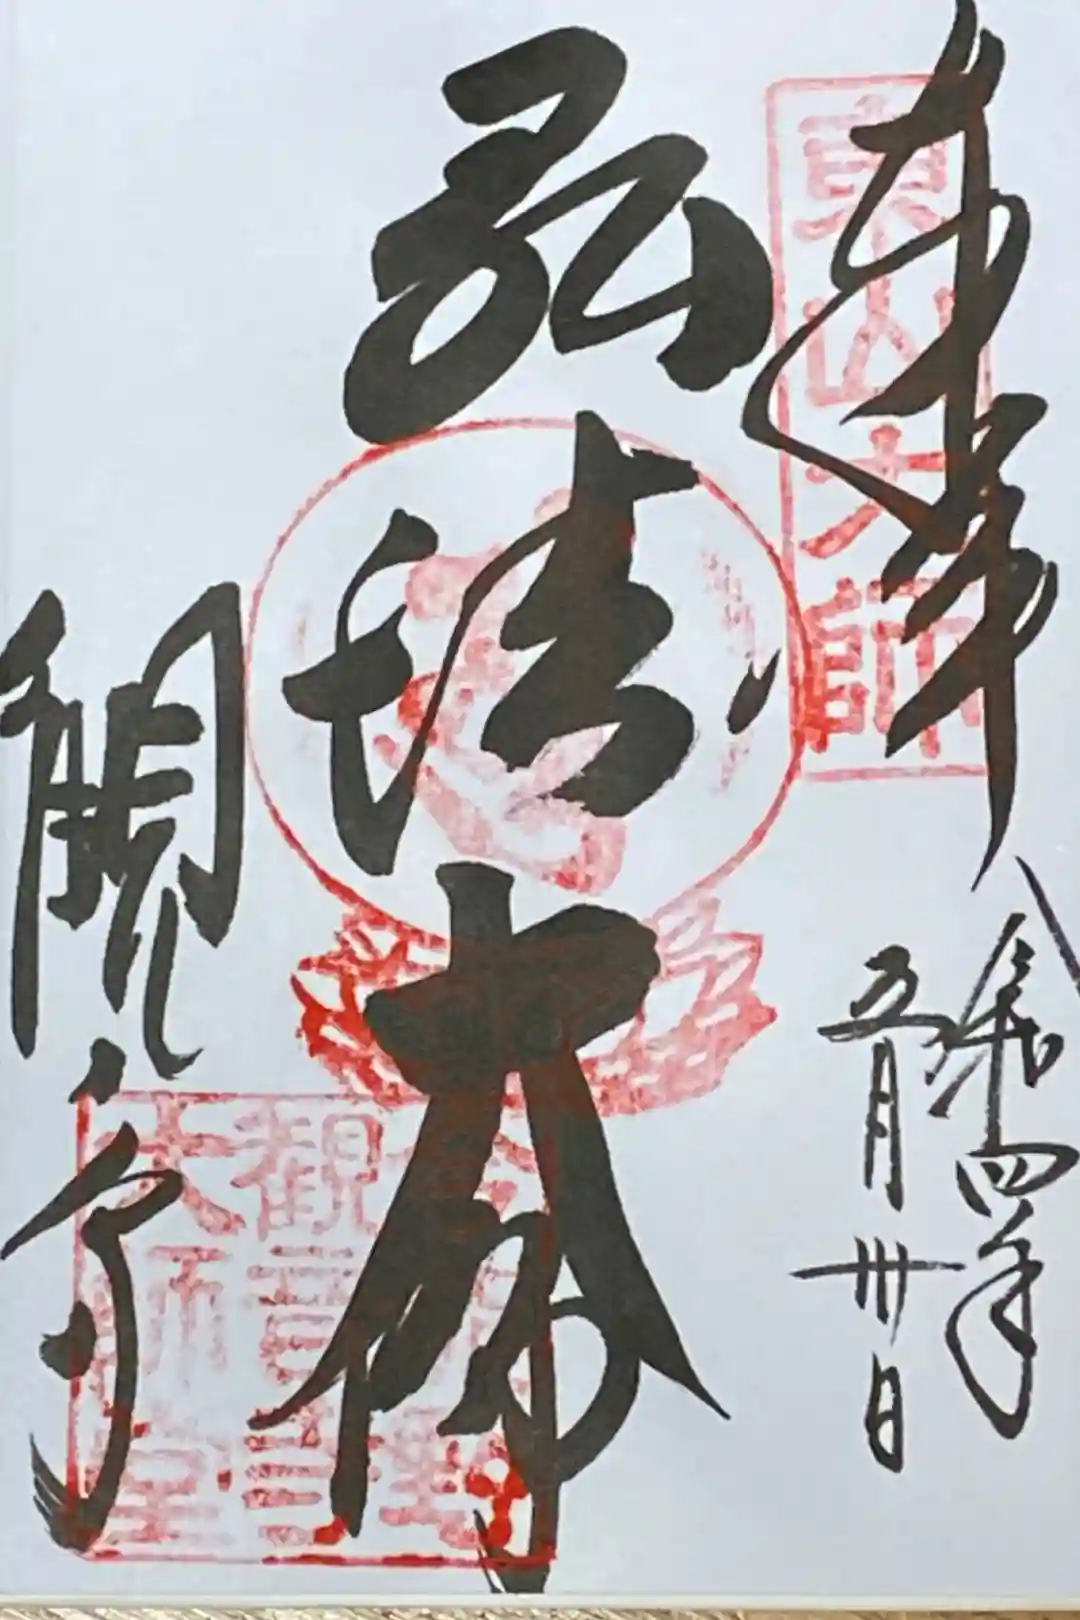 奉拝
令和四年
五月卅日
東山大師
弘法大師
観音寺
観音寺
大師堂